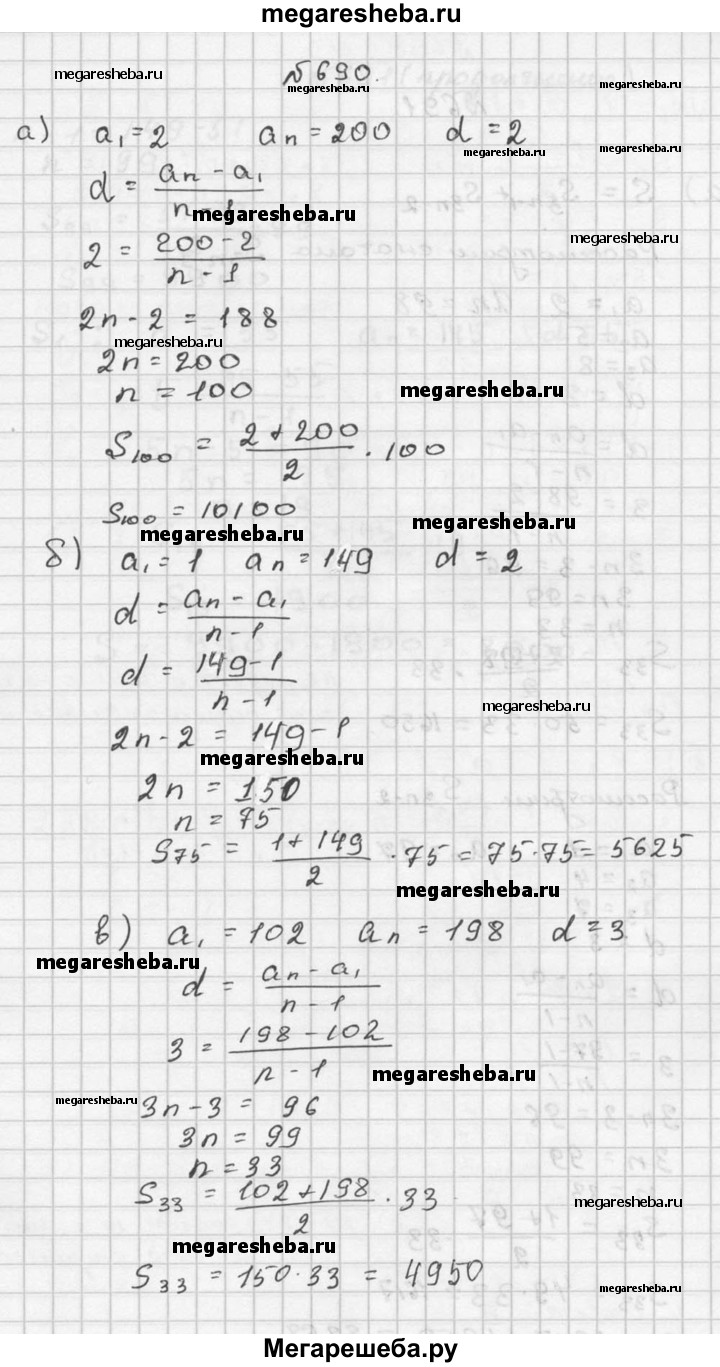 megaresheba.ru
№690.
megaresheba.ru
megaresheba.ru
megaresheba.ru
а) a₁ = 2 aₙ = 200 d = 2
megaresheba.ru
megaresheba.ru
d = (aₙ - a₁)/(n - 1)
megaresheba.ru
2 = (200 - 2)/(n - 1)
megaresheba.ru
2n - 2 = 188
megaresheba.ru
2n = 200
n = 100
megaresheba.ru
S₁₀₀ = (2 + 200)/2 · 100
S₁₀₀ = 10100
megaresheba.ru
megaresheba.ru
б) a₁ = 1 aₙ = 149 d = 2
d = (aₙ - a₁)/(n - 1)
d = (149 - 1)/(n - 1)
megaresheba.ru
2n - 2 = 149 - 1
megaresheba.ru
2n = 150
n = 75
S₇₅ = (1 + 149)/2 · 75 = 75·75 = 5625
megaresheba.ru
в) a₁ = 102 aₙ = 198 d = 3
megaresheba.ru
d = (aₙ - a₁)/(n - 1)
3 = (198 - 102)/(n - 1)
megaresheba.ru
megaresheba.ru
3n - 3 = 96
3n = 99
n = 33
S₃₃ = (102 + 198)/2 · 33
megaresheba.ru
megaresheba.ru
S₃₃ = 150·33 = 4950
megaresheba.ru
Мегарешеба.ру